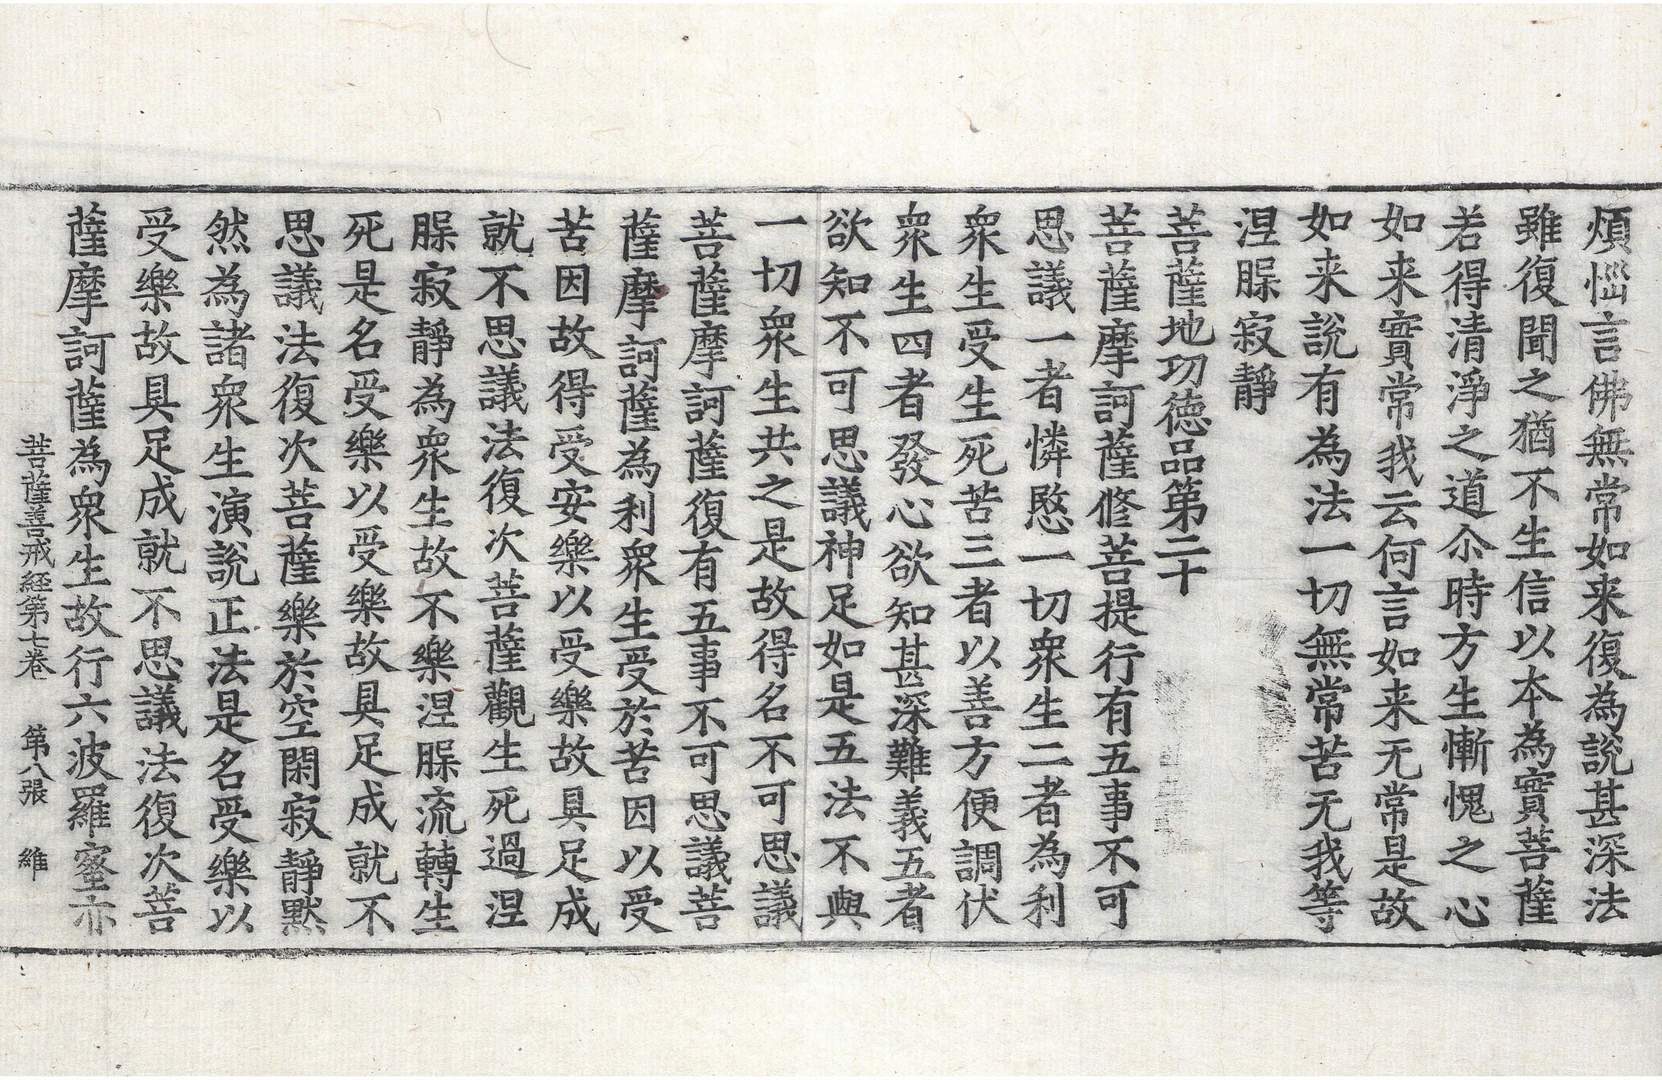 煩惱言佛無常如来復為說甚深法
雖復聞之猶不生信以本為實菩薩
若得清淨之道尒時方生慚愧之心
如来實常我云何言如来无常是故
如来說有為法一切無常苦无我等
涅槃寂靜
菩薩地功德品第二十
菩薩摩訶薩修菩提行有五事不可
思議一者憐愍一切衆生二者為利
衆生受生死苦三者以善方便調伏
衆生四者發心欲知甚深難義五者
欲知不可思議神足如是五法不與
一切衆生共之是故得名不可思議
菩薩摩訶薩復有五事不可思議菩
薩摩訶薩為利衆生受於苦因以受
苦因故得受安樂以受樂故具足成
就不思議法復次菩薩觀生死過涅
槃寂靜為衆生故不樂涅槃流轉生
死是名受樂以受樂故具足成就不
思議法復次菩薩樂於空閑寂靜默
然為諸衆生演說正法是名受樂以
受樂故具足成就不思議法復次菩
薩摩訶薩為衆生故行六波羅蜜亦
菩薩善戒經第七卷 第八張 維